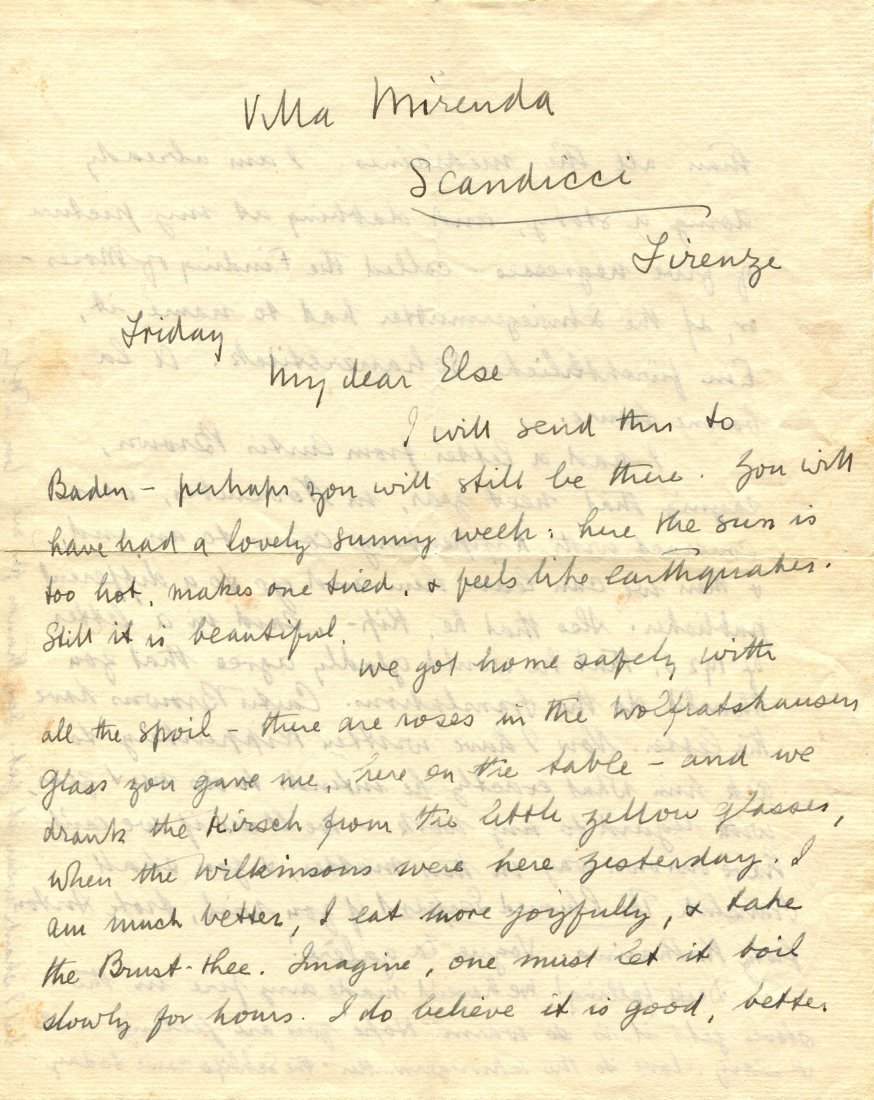 Villa Mirenda
Scandicci
Firenze
Friday
My dear Else
I will send this to
Baden – perhaps you will still be there. You will
have had a lovely sunny week: here the sun is
too hot, makes one tired, & feels like earthquakes.
Still it is beautiful.
We got home safely with
all the spoil – there are roses in the Wolfratshausen
glass you gave me, here on the table – and we
drank the Kirsch from the little yellow glasses,
when the Wilkinsons were here yesterday. I
am much better, I eat more joyfully, & take
the Brust-thee. Imagine, one must let it boil
slowly for hours. I do believe it is good, better